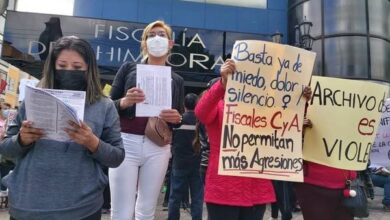 FISCALÍA
DE CHIMBORAZO
Basta ya de
miedo, dolor
silencio ♀
Fiscales CyA
No permitan
más Agresiones
ARCHIVO
es
VIOLE